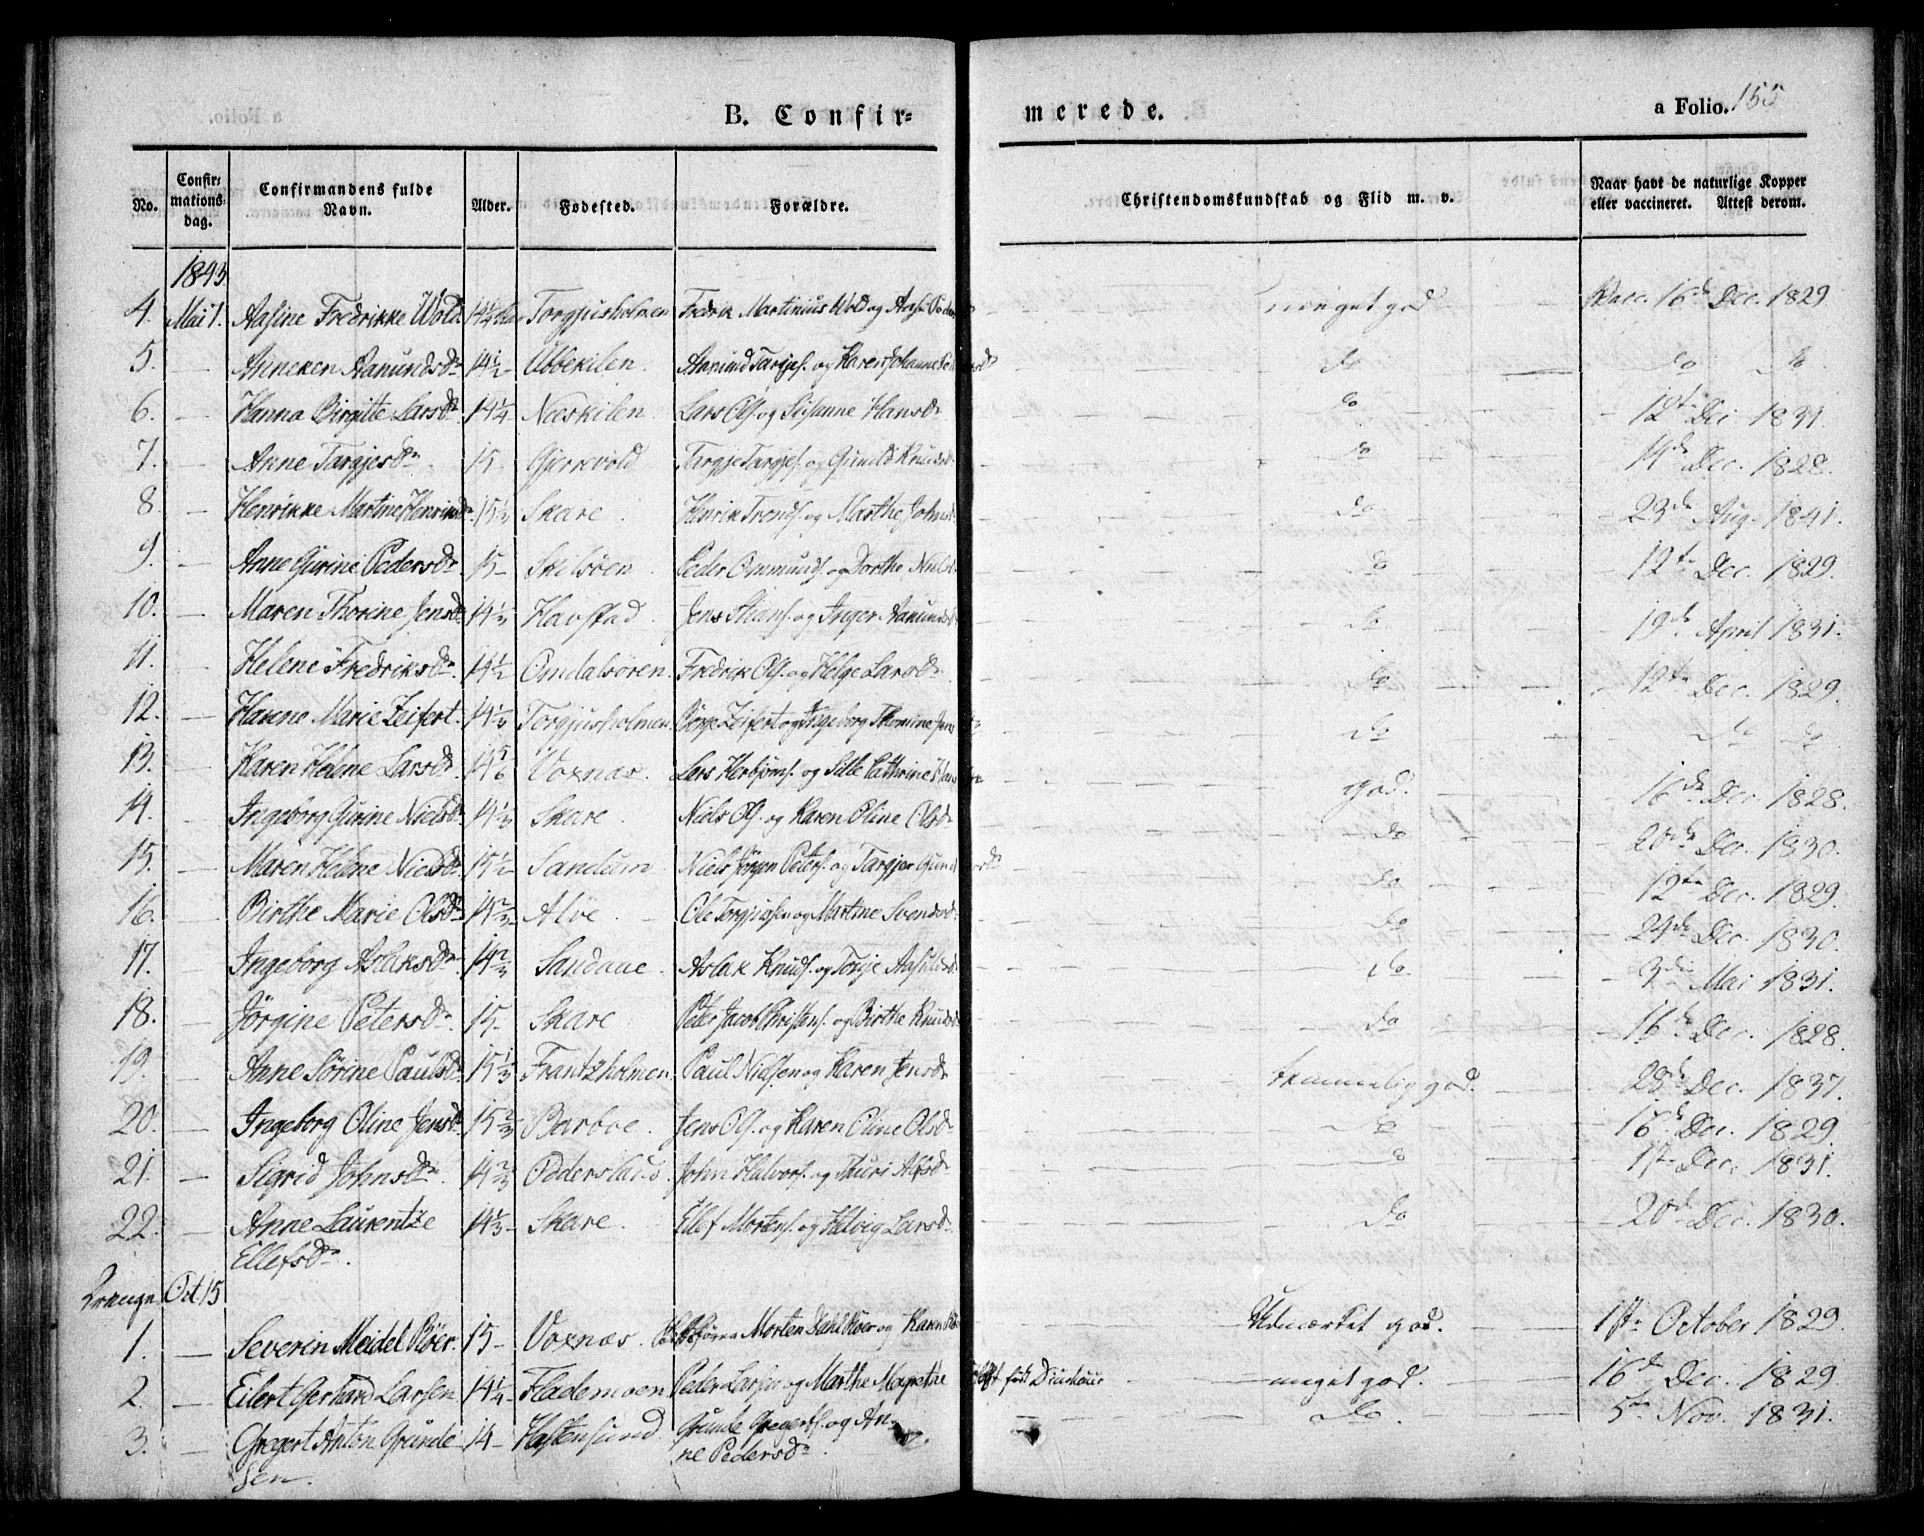 B. Confirmerede. a Folio. 155
No. Confirmations dag. Confirmandens fulde Navn. Alder. Fødested. Forældre. Christendomskundskab og Flid m. v. Naar havt de naturlige Kopper eller vaccineret. Attest derom.
1843
4. Mai 7. Aasine Fredrikke Wold 14 1/4 Torgjusholmen Fredrik Martinius Wold og meget god Vacc. 16de Dec. 1829
5. — Anneken Aanundsdr 14 1/2 Ubbekilen. Aanund Targjes. og Karen Johanne do do do
6. — Hanna Birgitte Larsdr 14 1/4 Næskilen Lars Ols. og Susanne Hansdr do 12te Dec 1831.
7. — Anne Targjesdr 15 Gjerkvold Targje Targjes. og Gunild Knudsdr do 14de Dec. 1828.
8. — Henrikke Martine Henriksdr 15 1/2 Skare. Henrik Tronds. og Marthe Johnsdr do 23de Aug. 1841.
9. — Anne Gurine Pedersdr 15 Skilsöen. Peder Ommunds. og Dorthe Nielsdr do 12te Dec. 1829.
10. — Maren Thorine Jensdr 14 1/2 Havstad. Jens Stians. og Inger Aanundsdr do 19de April 1831.
11. Helene Fredriksdr 14 1/2 Omdalsören. Fredrik Ols. og Helge Larsdr do 12te Dec. 1829.
12. — Hanne Marie Zeifert. 14 1/2 Torgjusholmen. Börge Zeifert og Ingeborg Thomine do do do
13. — Karen Helene Larsdr 14 5/6 Voxnæs. Lars Herbjörns. og Sille Cathrine god. 16de Dec. 1828.
14. — Ingeborg Gurine Nielsdr 14 1/2 Skare. Niels Ols. og Karen Oline Olsdr do 20de Dec. 1830.
15. — Maren Helene Nielsdr 15 1/2 Sandum Niels Jörgen Peters. og Targjer do 12te Dec. 1829.
16. — Birthe Marie Olsdr 14 2/3 Alve. Ole Torgjussen og Martine Svendsdr do 29de Dec. 1830.
17. — Ingeborg Aslaksdr 14 2/3 Sandaae. Aslak Knuds. og Torje do 3die Mai 1831.
18. — Jörgine Petersdr 15 Skare Peter Jacob Christens. og Birthe Knudsdr do 16de Dec. 1828.
19. — Anne Sörine Paulsdr 15 1/3 Frantzholmen. Paul Nielsen og Karen Jensdr temmelig god. 28de Dec. 1837.
20. — Ingeborg Oline Jensdr 15 2/3 Barboe. Jens Ols. og Karen Oline Olsdr do 16de Dec. 1829.
21. — Sigrid Johnsdr 14 2/3 Odderslaus. John Halvors. og Thuri Alfsdr do 1ste Dec. 1831.
22. — Anne Laurentze 14 1/3 Skare. Ellef Mortens. og Helvig Larsdr. do 20de Dec. 1830.
Ellefsdr.
Drenge. Oct 15
1. — Severin Meidel Röer. 15 Voxnæs. Morten Dahl Röer og Karen Udmærket god. 1ste October 1829.
2. — Eilert Gerhard Larsen 14 1/4 Flademoen Peder Larsen og Marthe Margrethe meget god. 16de Dec. 1829
3. — Gregert Anton Grunde 14 Hastensund Grunde Gregerts. og An- do. 5te Nov. 1831.
sen. ne Pedersdr.